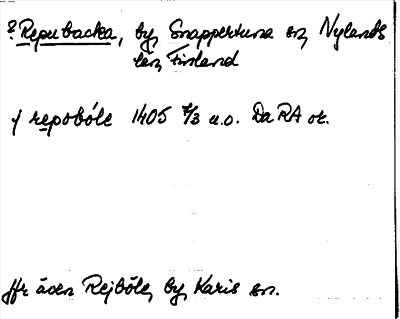 ? Repubacka, by, Snappertuna sn, Nylands
län, Finland
y repobóle 1405 7/3 u.o. DaRA or.
Jfr även Rejböle, by, Karis sn.